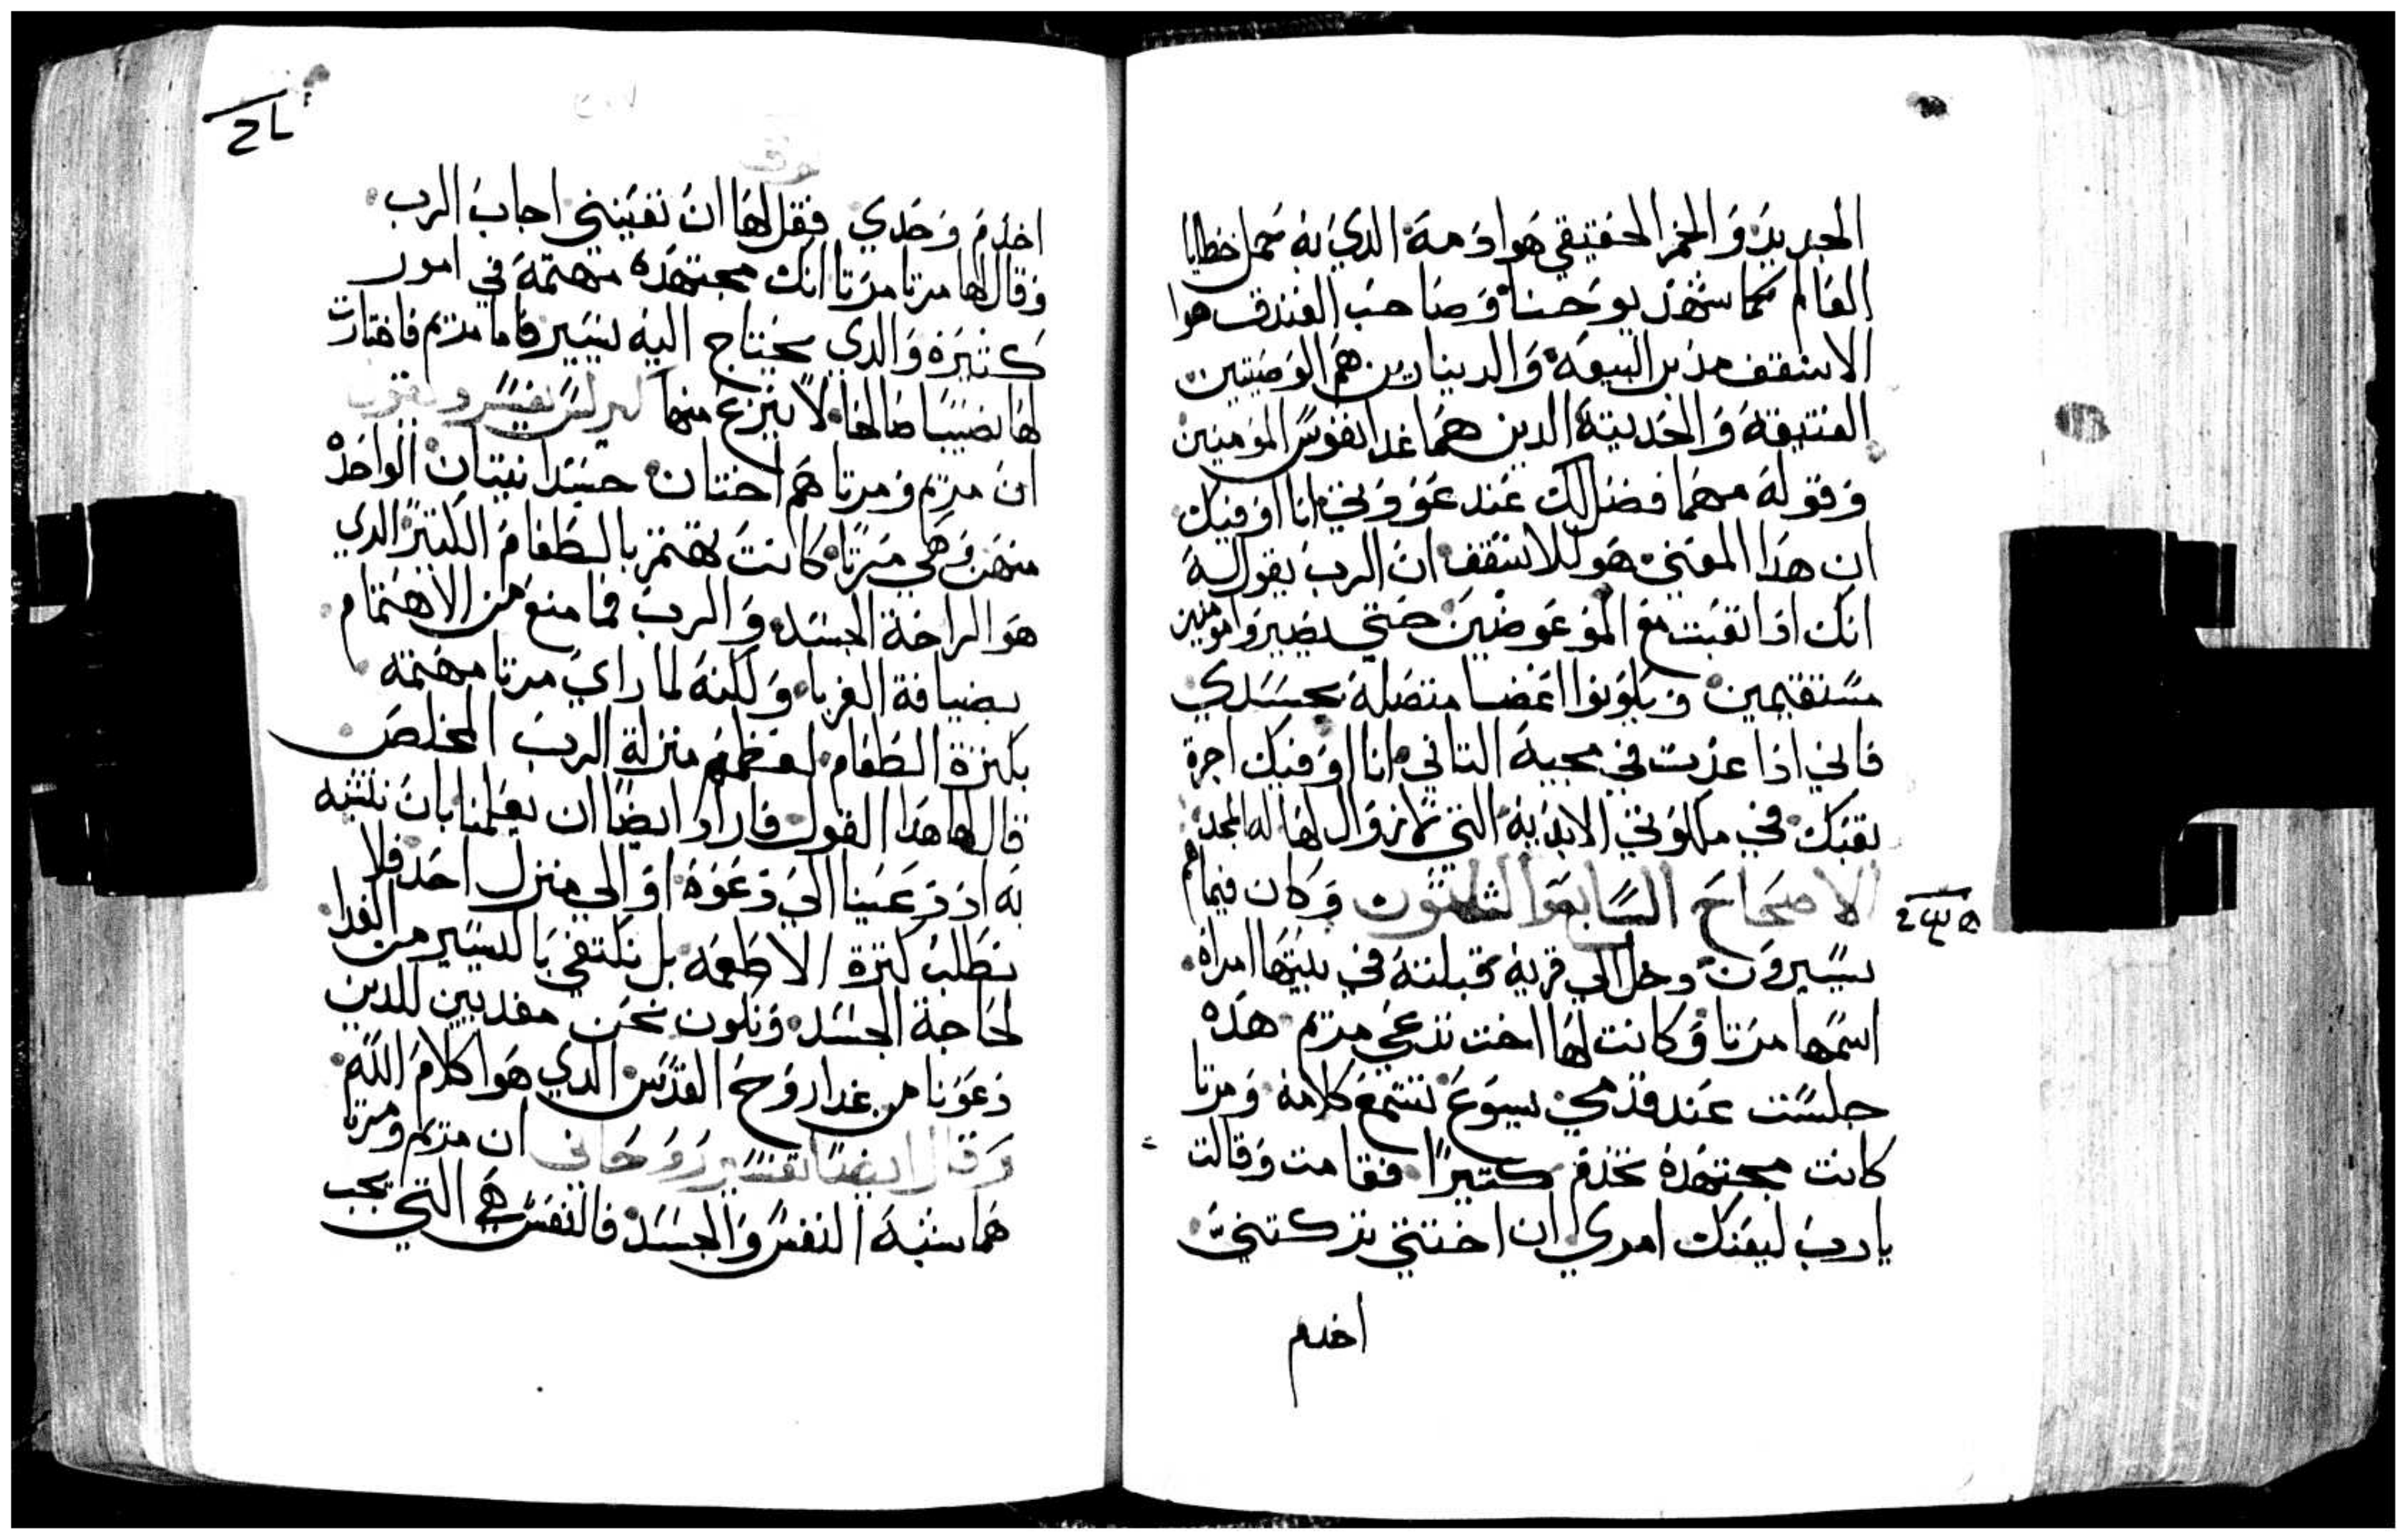 الجديد وَالخمر الحقيقي هَوا دَمه الديَ بهَ حمل خطايا
العَالم كما شهدَ يوحَنا وَصَاحبَ الفندق هوا
الاسَقف مدَبر البيعَة وَالدينارين همَ الوَصيتين
العتيقهَ وَالحَديتهَ الدين همَا غدا لنفوسَ المؤمنين
وَقولهَ مهمَا فضل لك عَند عَوَدَتي انا اوَفيك
ان هدَا المعَني هَو للاسَقف انَ الرب يقول لهَ
انك ادَا تعَبت معَ الموَعَوضين حَتي يصَيروَا مومنين
مسَتقيمين وَيكوَنوا اعَضا متصَلهَ بجسَدي
فاني ادَا عدَت في مجيهَ التاني انا اوَفيك اجرة
تعَبك في ملكوَتي الابدَيهَ التي لا زوَال لهَا له المجد
الاصَحَاحَ السَابعَ وَالثلثوَن وَكان فيما هم
يسَيروَن دخل الي قريهَ قبلتهَ في بيتهَا امراه
اسَمهَا مرَتا وَكانت لهَا اخت تدعَي مريم هدَه
جلسَت عَند قدَمي يسَوَعَ تسَتمعَ كلامهَ وَمرتا
كانت مجتهدَهَ تخدَم كتيرًا فقامت وَقالت
يا ربَ ليعَنك امري ان اختتي تركتنيَ
اخدم
لوقا
اخدَمَ وَحَدي فقل لهَا انَ تعَينني اجابَ الرب
وَقال لها مرتا مرَتا انك مجتهدَه مهتمهَ في امور
كتيرَة وَالدي يحَتاج اليهَ يسَير فاما مريم فاختارت
لهَا نصَيبًا صَالحَا لا ينزعَ منها كيرلسَ يفسَر وَيقول
انَ مريم وَمرتا همَ اختان جسَدانيتان الواحَده
منهَن وَهَي مرَتا كانت تهَتم بالطَعَامَ الكتير الدي
هوَ الراحَة الجسَد وَالربَ فما منعَ من الاهتمام
بضيافة الغربا وَلكنهَ لما رايَ مرتا مهتمه
بكترة الطَعَام لعَظم منزلة الربَ المخلصَ
قال لها هدَا القول فاراد ايضًا ان يعَلمنا بانَ نتشبه
بهَ ادَ دعَينا اليَ دعَوَة اوَ الي منزل احَد فلا
نطَلبَ كترة الاطعمَه بل نكتفي باليسَير من الغدا
لحَاجة الجسَد وَنكون نحَن مغديين للدين
دعَوَنا من غدا روَحَ القدَس الدي هوَا كلامَ الله
وَقال ايضًا تفسَير رَوَحَاني ان مريم ومرتا
همَا شبهَ النفسَ وَالجسَد فالنفسَ هَي التي يجب